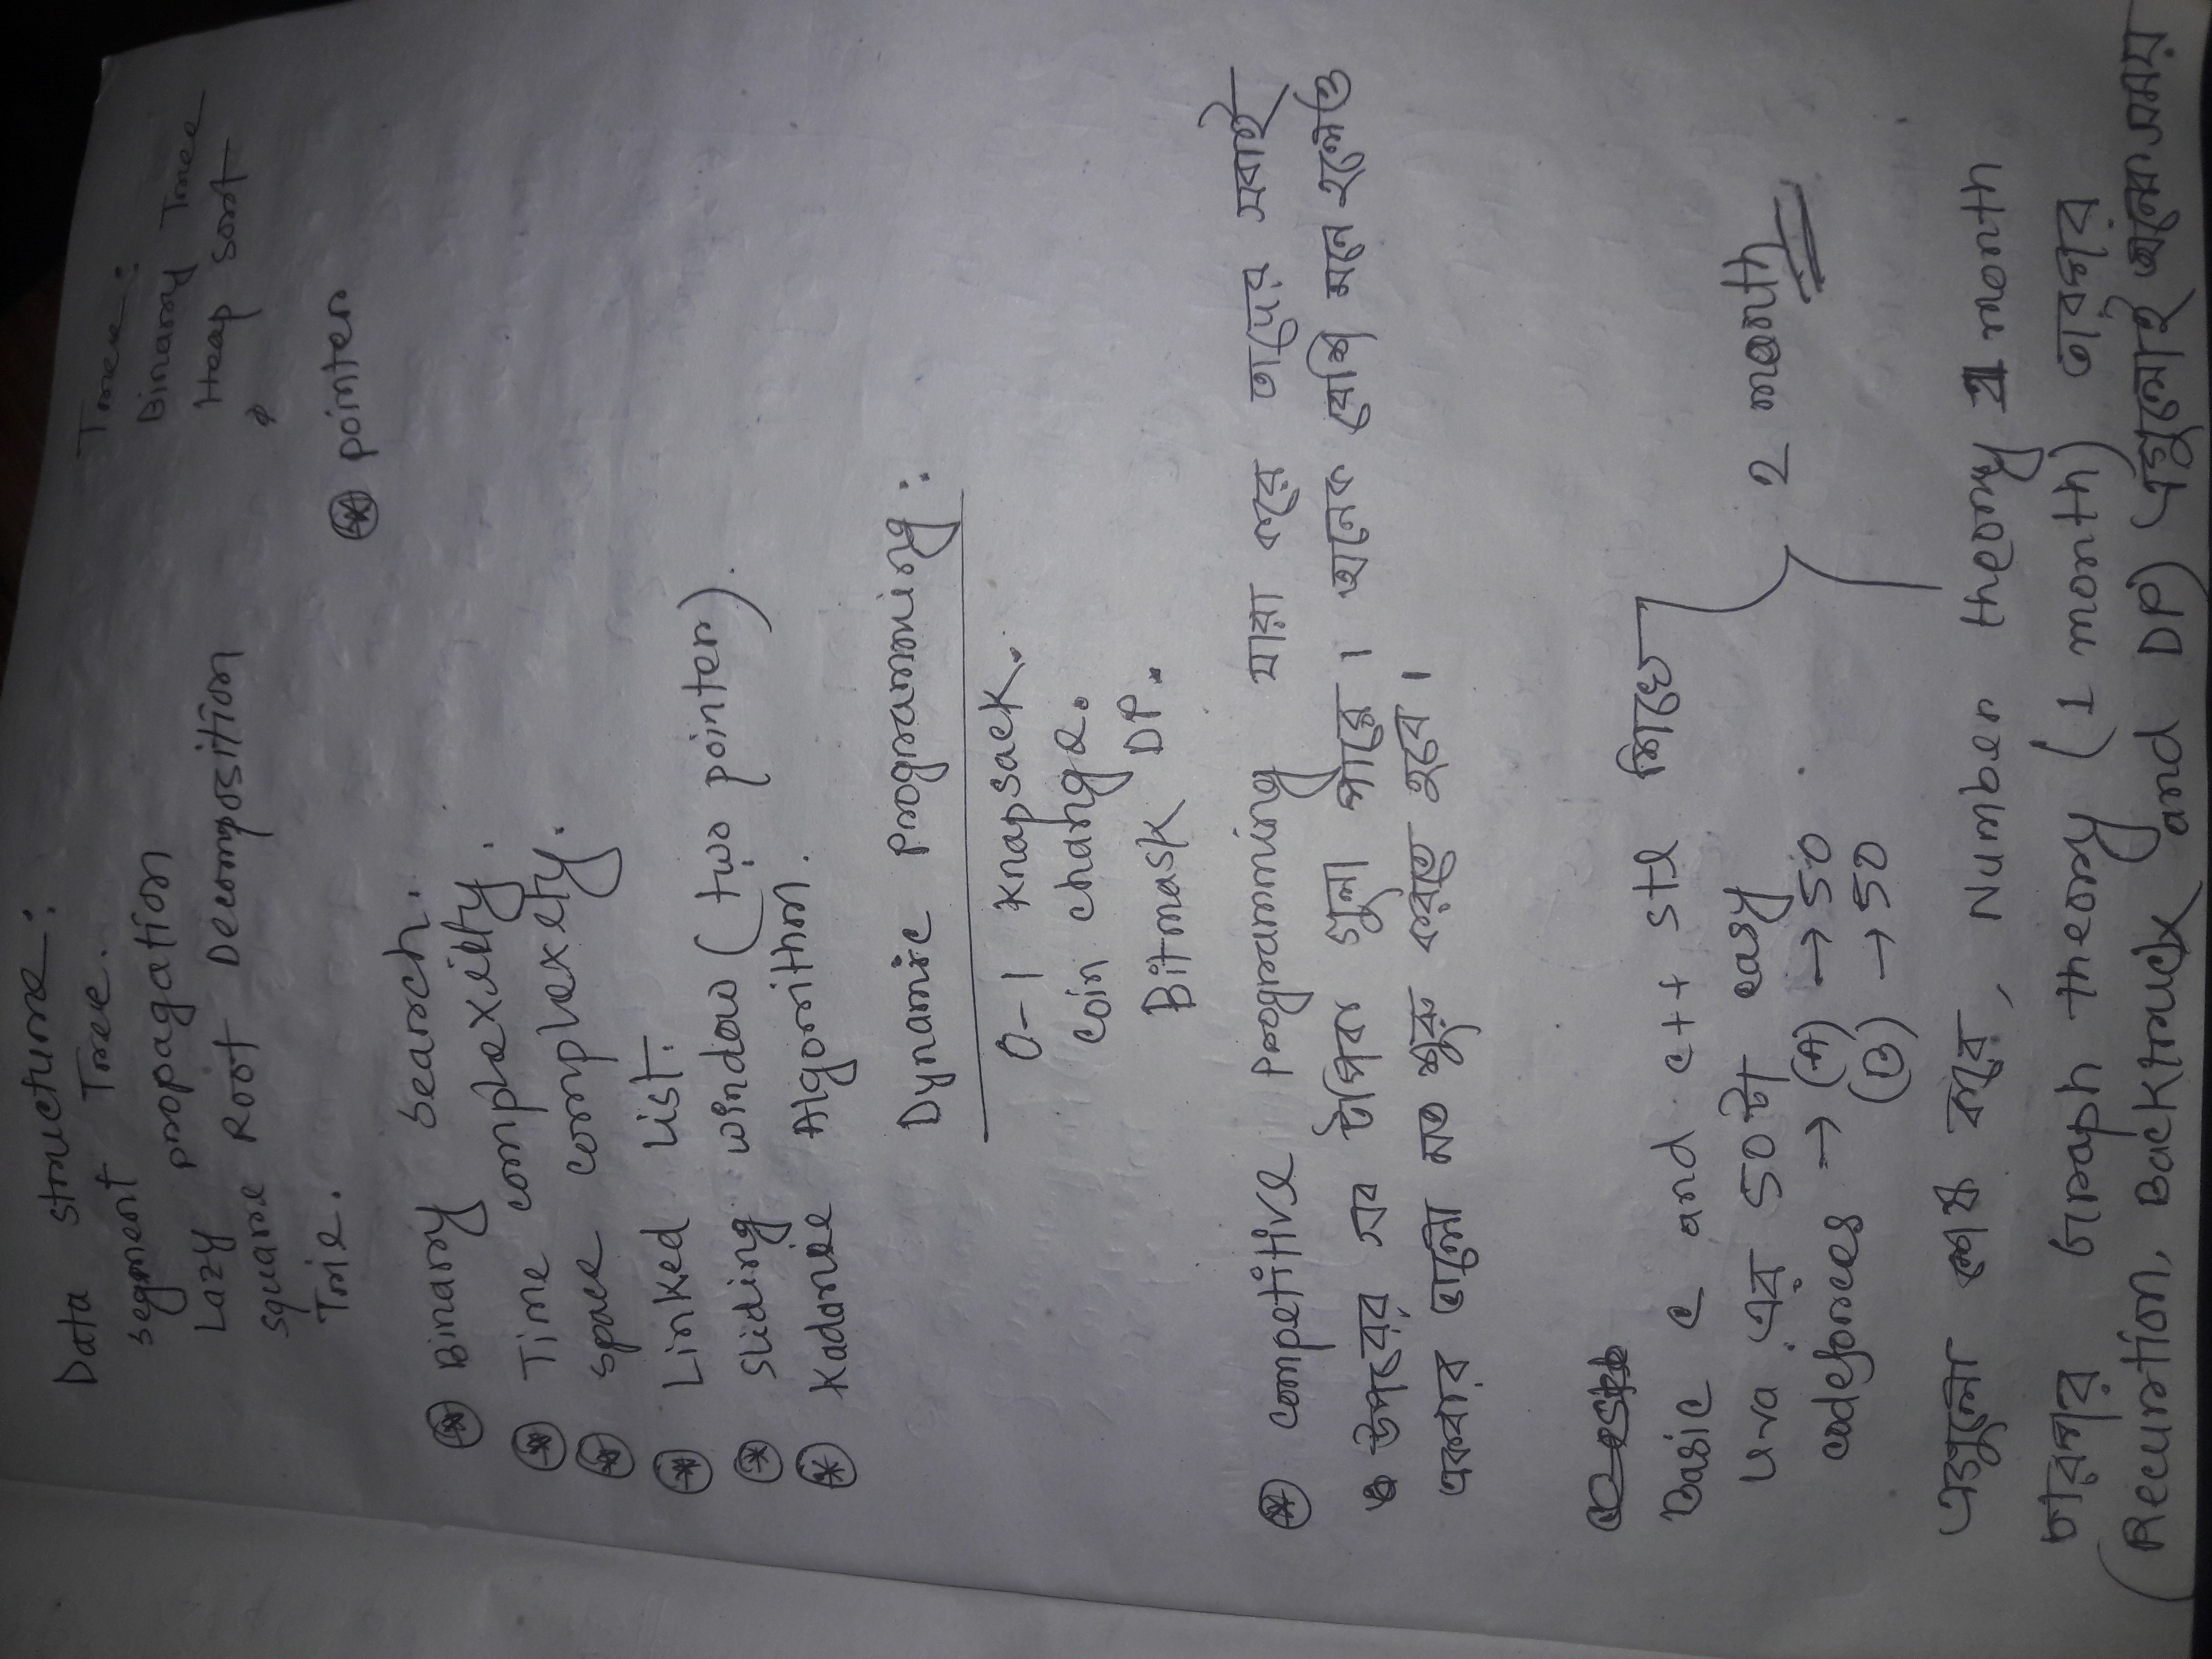 Data structure:
Segment Tree.
Lazy propagation
square Root Decomposition
Trie.
Tree:
Binary Tree
Heap sort
pointer
Binary Search.
Time complexity.
space complexety.
Linked List.
Sliding window (two pointer).
Kadane Algorithm.
Dynamic Programming:
0-1 Knapsack.
Coin change.
Bitmask DP.
competitive Programming যারা করে তাদের সবাই
উপরের সব টপিক গুলা পারে। অনেক বেশি মনে হলেও
একবার ভালো মত শুরু করতে হবে।
Basic C and C++ stl শিখে
Uva এর 50টা easy
codeforces → (A) → 50
(B) → 50
2 month
এগুলো শেষ করে, Number theory 1 month
তারপর Graph theory (1 month) তারপর
(Recurtion, Backtruck and DP) এগুলোই অনেক সময়